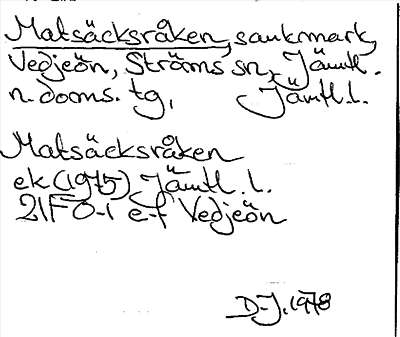 Matsäcksråken, sankmark,
Vedjeön, Ströms sn, Jämtl.
n. doms. tg, Jämtl. l.
Matsäcksråken
ek (1975) Jämtl. l.
21F 0-1 e-f Vedjeön
D-J. 1978